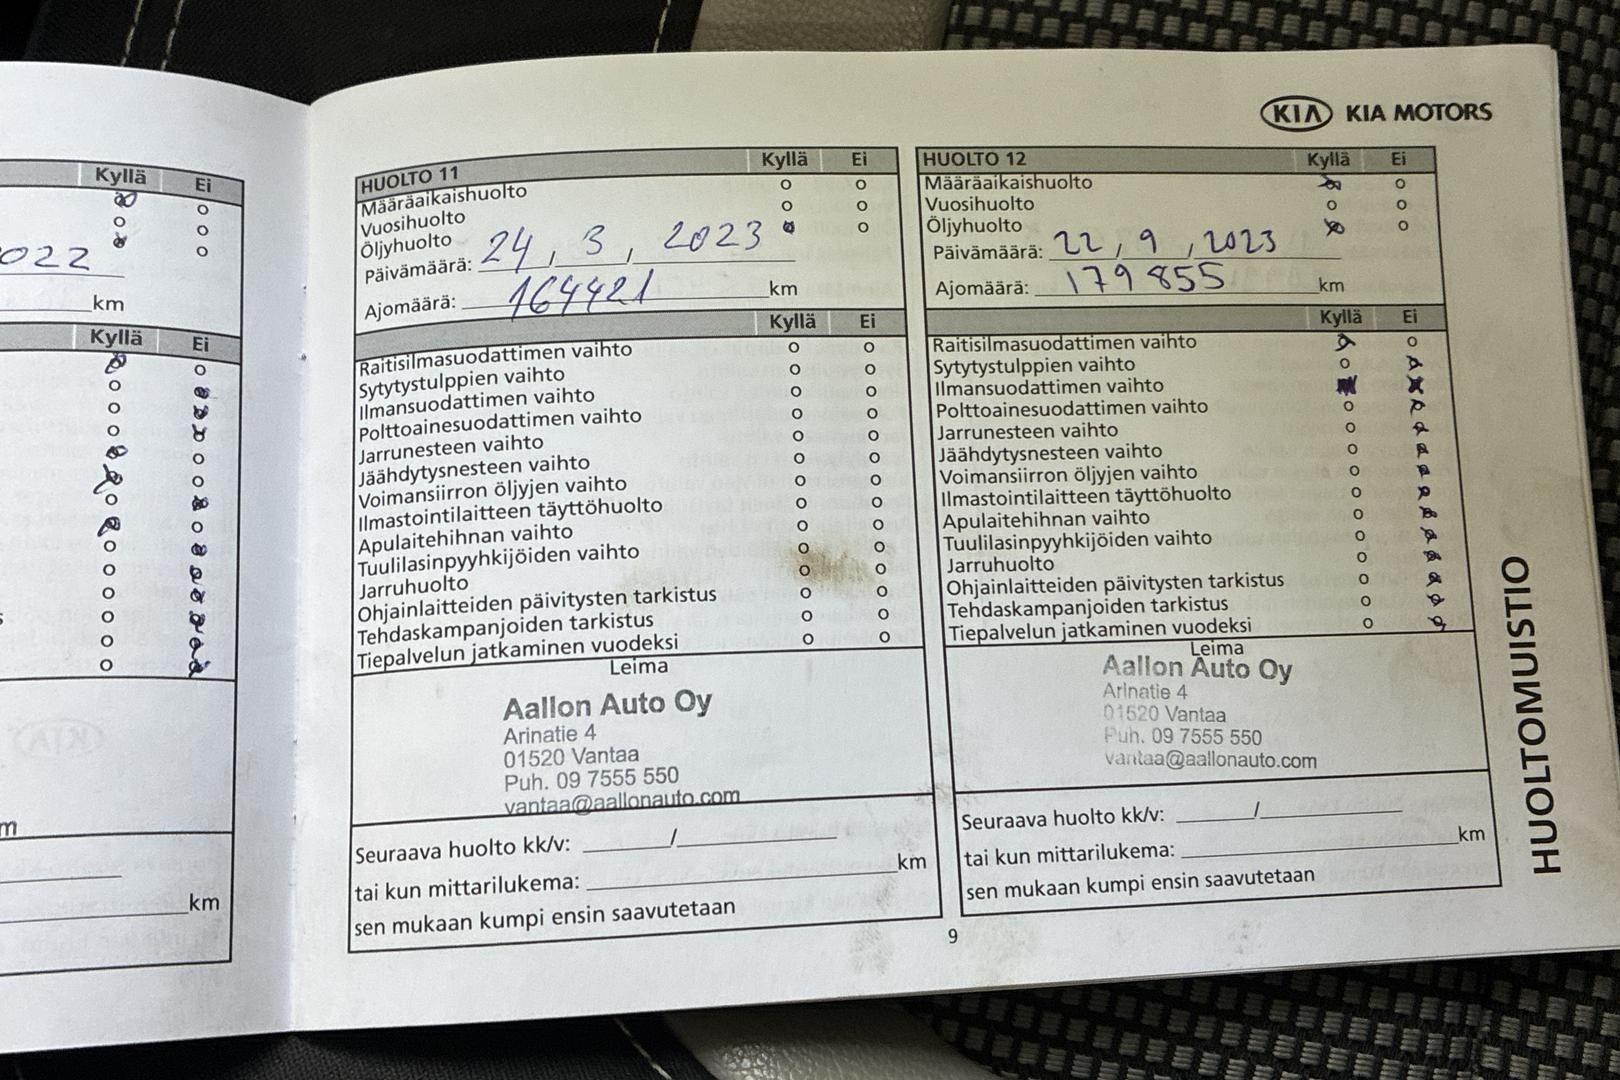 KIA KIA MOTORS
Kyllä Ei
022
km
Kyllä Ei
m
km
HUOLTO 11 Kyllä Ei
Määräaikaishuolto
Vuosihuolto
Öljyhuolto
Päivämäärä: 24, 3, 2023
Ajomäärä: 164421 km
Kyllä Ei
Raitisilmasuodattimen vaihto
Sytytystulppien vaihto
Ilmansuodattimen vaihto
Polttoainesuodattimen vaihto
Jarrunesteen vaihto
Jäähdytysnesteen vaihto
Voimansiirron öljyjen vaihto
Ilmastointilaitteen täyttöhuolto
Apulaitehihnan vaihto
Tuulilasinpyyhkijöiden vaihto
Jarruhuolto
Ohjainlaitteiden päivitysten tarkistus
Tehdaskampanjoiden tarkistus
Tiepalvelun jatkaminen vuodeksi
Leima
Aallon Auto Oy
Arinatie 4
01520 Vantaa
Puh. 09 7555 550
vantaa@aallonauto.com
Seuraava huolto kk/v: /
tai kun mittarilukema: km
sen mukaan kumpi ensin saavutetaan
HUOLTO 12 Kyllä Ei
Määräaikaishuolto
Vuosihuolto
Öljyhuolto
Päivämäärä: 22, 9, 2023
Ajomäärä: 179855 km
Kyllä Ei
Raitisilmasuodattimen vaihto
Sytytystulppien vaihto
Ilmansuodattimen vaihto
Polttoainesuodattimen vaihto
Jarrunesteen vaihto
Jäähdytysnesteen vaihto
Voimansiirron öljyjen vaihto
Ilmastointilaitteen täyttöhuolto
Apulaitehihnan vaihto
Tuulilasinpyyhkijöiden vaihto
Jarruhuolto
Ohjainlaitteiden päivitysten tarkistus
Tehdaskampanjoiden tarkistus
Tiepalvelun jatkaminen vuodeksi
Leima
Aallon Auto Oy
Arinatie 4
01520 Vantaa
Puh. 09 7555 550
vantaa@aallonauto.com
Seuraava huolto kk/v: /
tai kun mittarilukema: km
sen mukaan kumpi ensin saavutetaan
9
HUOLTOMUISTIO